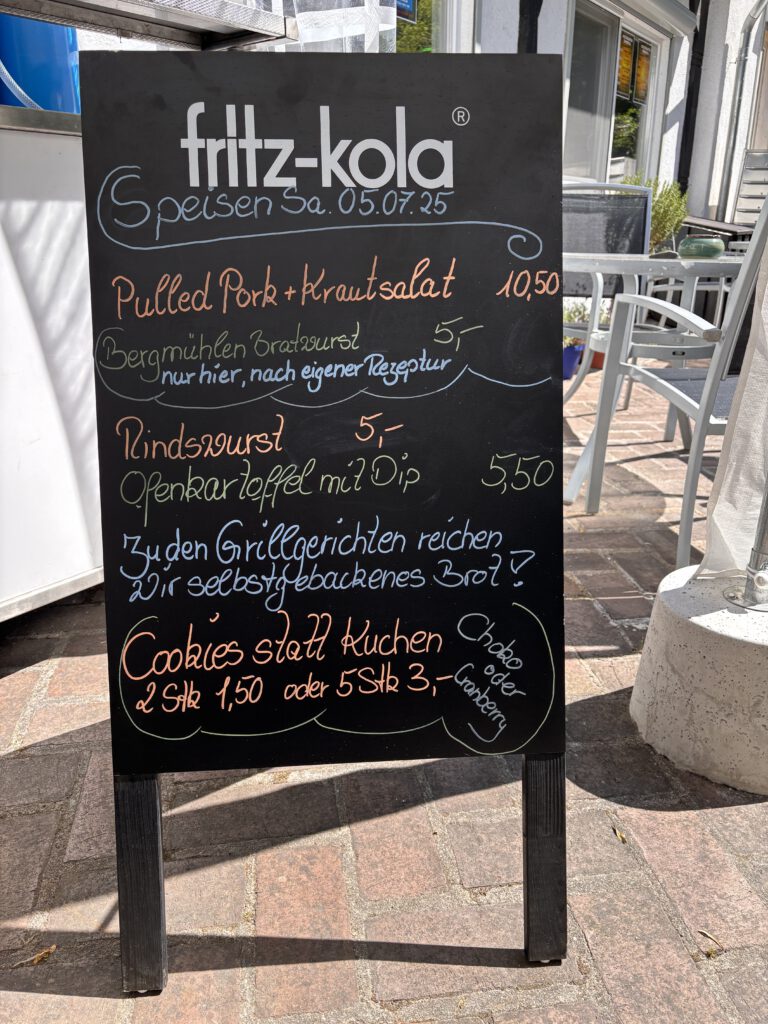 fritz-kola®
Speisen Sa. 05.07.25
Pulled Pork + Krautsalat 10,50
Bergmühlen Bratwurst 5,-
nur hier, nach eigener Rezeptur
Rindswurst 5,-
Ofenkartoffel mit Dip 5,50
Zu den Grillgerichten reichen
wir selbstgebackenes Brot!
Cookies statt Kuchen
2 Stk 1,50 oder 5 Stk 3,-
Choko
oder
Cranberry